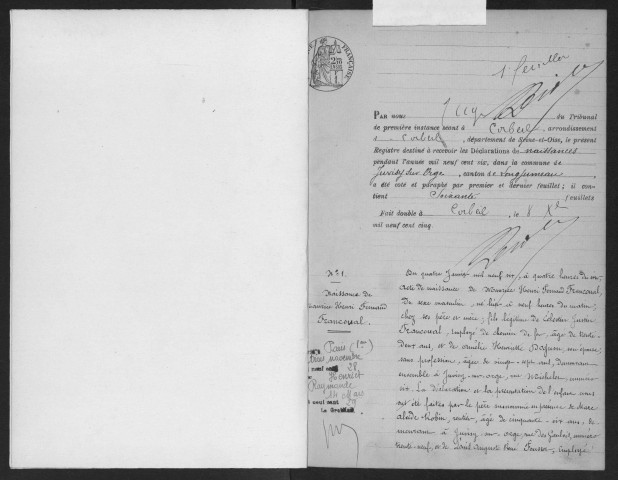 1er feuillet
FRANÇAISE
PAR nous Juge du Tribunal
de première instance séant à Corbeil, arrondissement
Corbeil, département de Seine-et-Oise, le présent
Registre destiné à recevoir les Déclarations de naissances
pendant l'année mil neuf cent six, dans la commune de
Juvisy sur Orge, canton de Longjumeau
a été coté et paraphé par premier et dernier feuillet; il con-
tient Soixante feuillets
Fait double à Corbeil, le 8 Xbre
mil neuf cent cinq.
N° 1.
Naissance de
Maurice Henri Fernand
Francoual.
Paris
trois novembre
28
Henriet
Raymonde
29
Du quatre Janvier mil neuf cent six, à quatre heures du soir
Acte de naissance de Maurice Henri Fernand Francoual,
du sexe masculin, né hier à neuf heures du matin,
chez ses père et mère; fils légitime de Célestin Justin
Francoual, employé de chemin de fer, âgé de trente-
deux ans, et de Henriette son épouse,
sans profession, âgée de vingt-sept ans, demeurant
ensemble à Juvisy-sur-orge, rue Michelon, numéro
six. La déclaration et la présentation de l'enfant nous
ont été faites par le père susnommé en présence de
Robin, rentier, âgé de cinquante-six ans, de-
meurant à Juvisy-sur-orge, rue des Gaulois, numéro
trente-neuf, et de Auguste employé